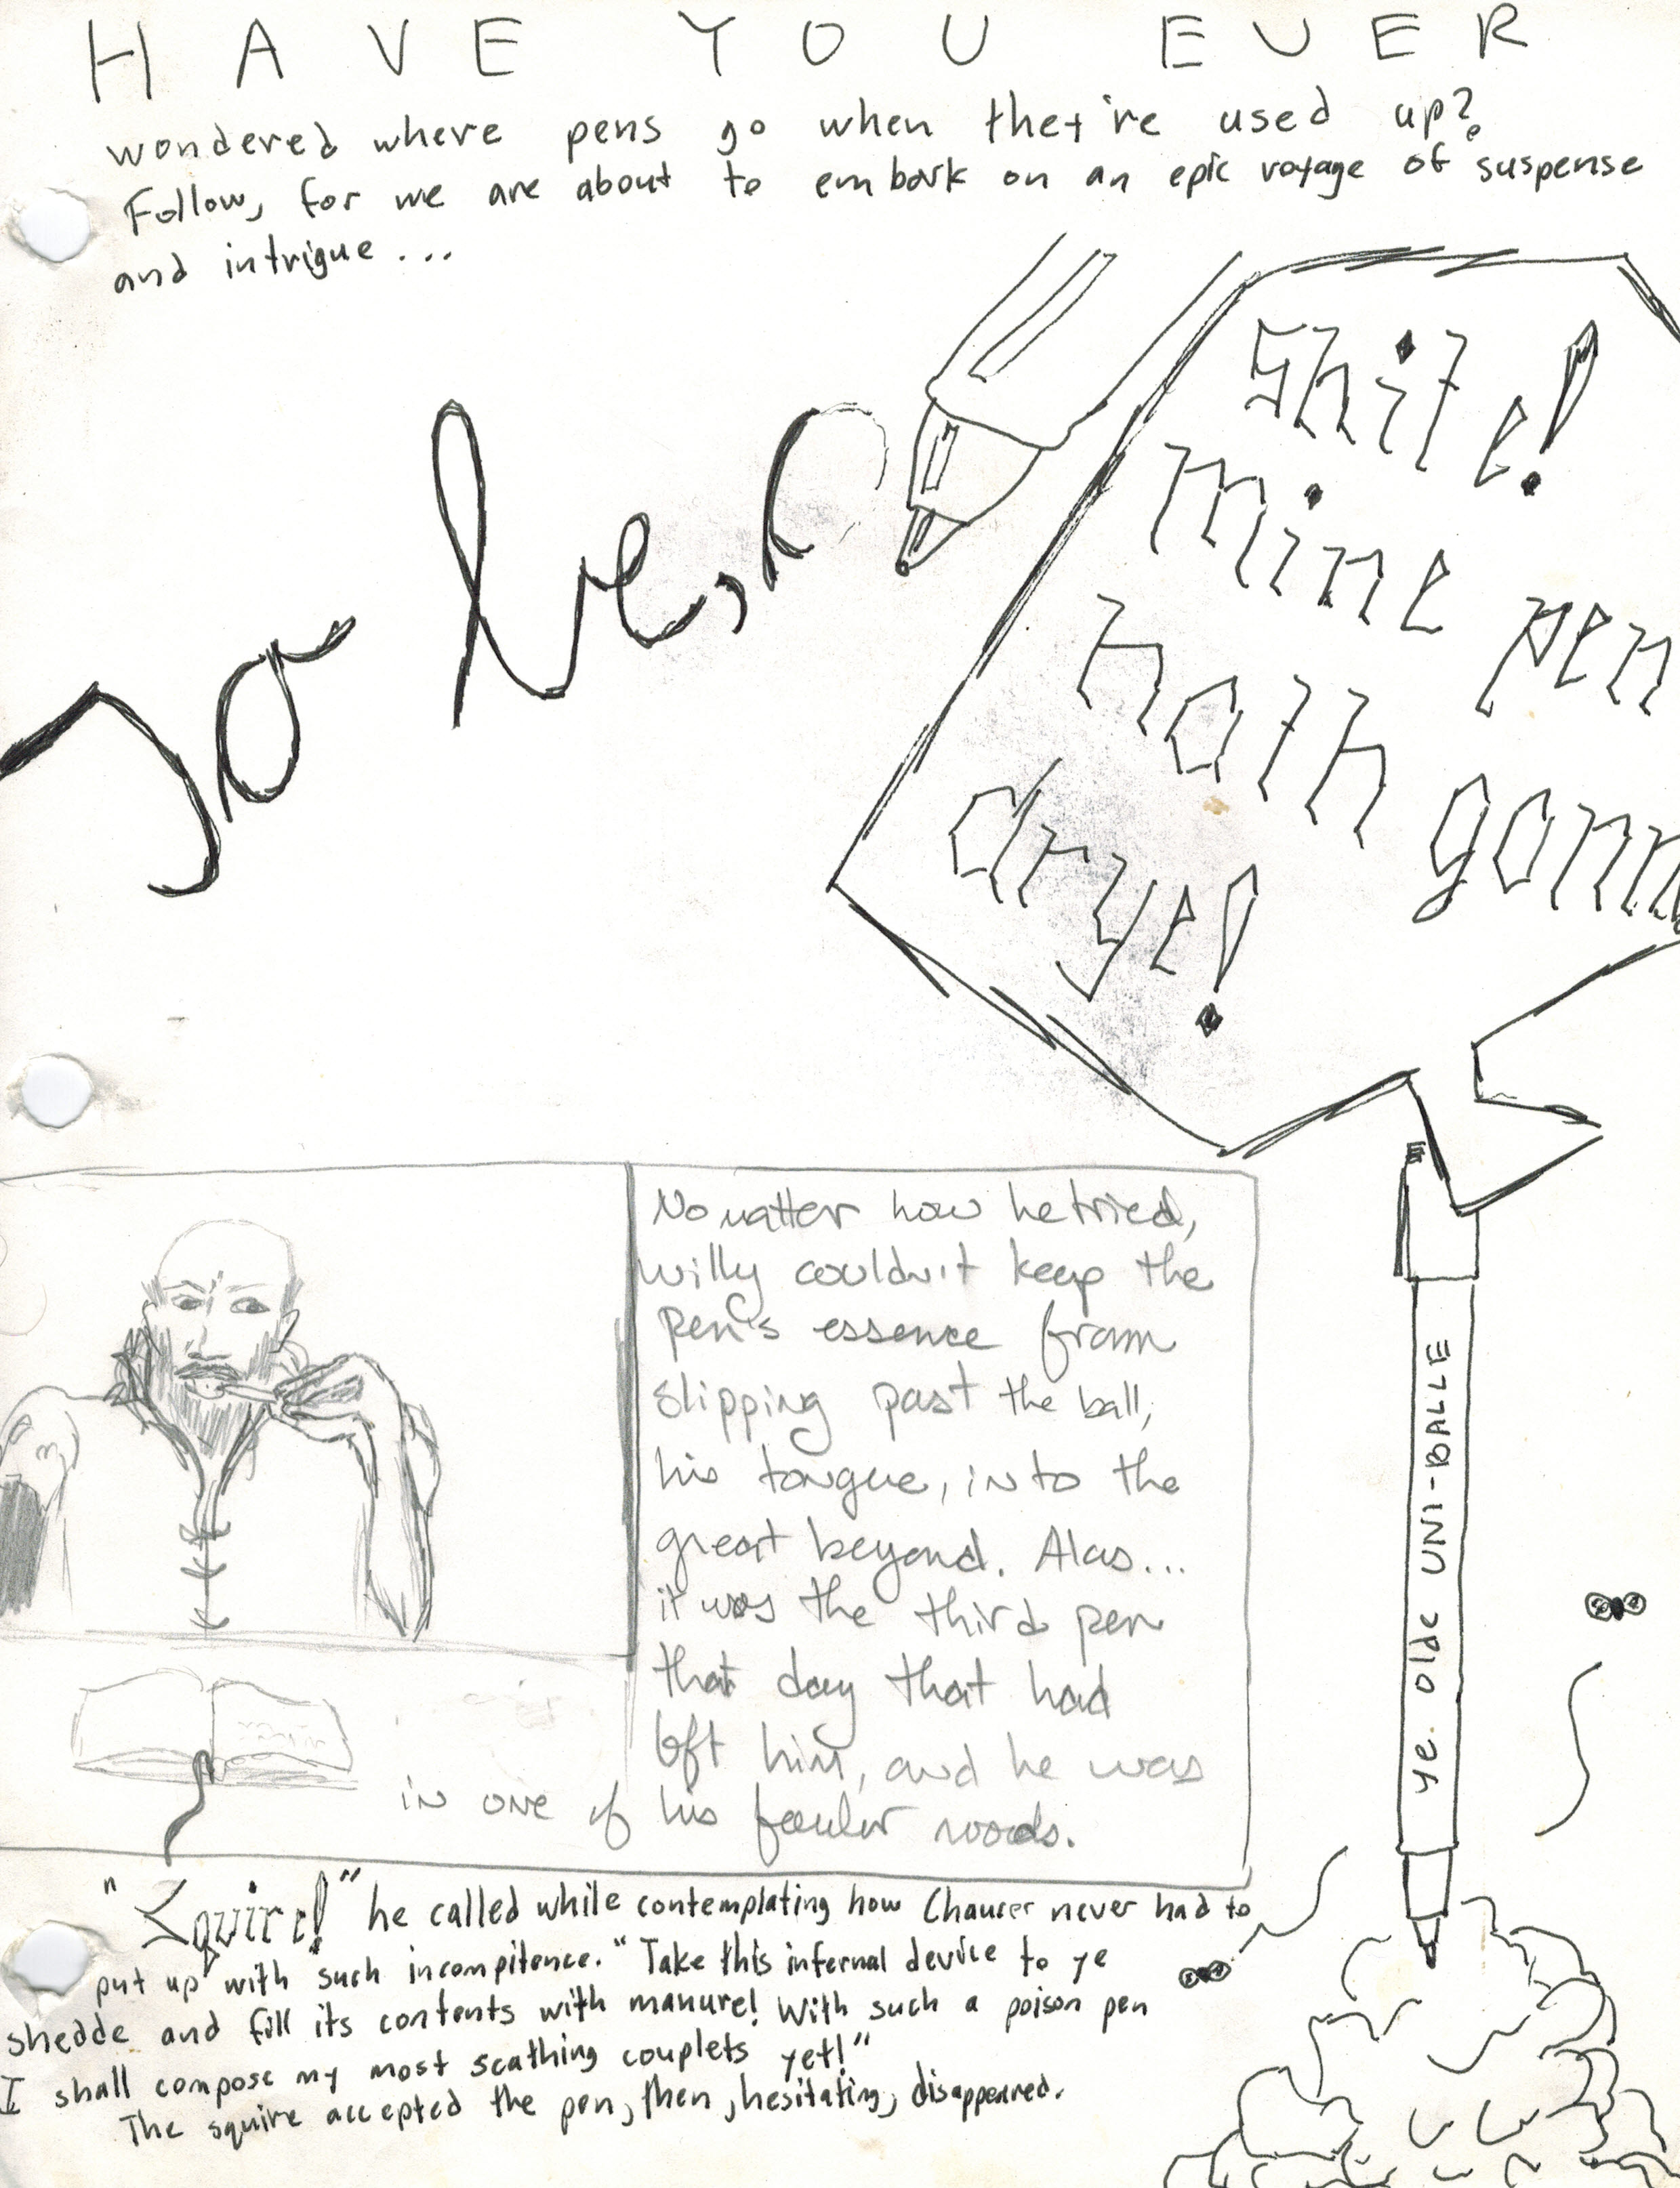 HAVE YOU EVER
wondered where pens go when they're used up?
Follow, for we are about to embark on an epic voyage of suspense
and intrigue...
To be,
Shite!
mine pen
hath gonn
drye!
No matter how he tried,
willy couldn't keep the
pen's essence from
slipping past the ball,
his tongue, into the
great beyond. Alas...
it was the third pen
that day that had
left him, and he was
in one of his fouler moods.
ye olde UNI-BALLE
"Squire!" he called while contemplating how Chaucer never had to
put up with such incompitence. "Take this infernal device to ye
shedde and fill its contents with manure! With such a poison pen
I shall compose my most scathing couplets yet!"
The squire accepted the pen, then, hesitating, disappeared.